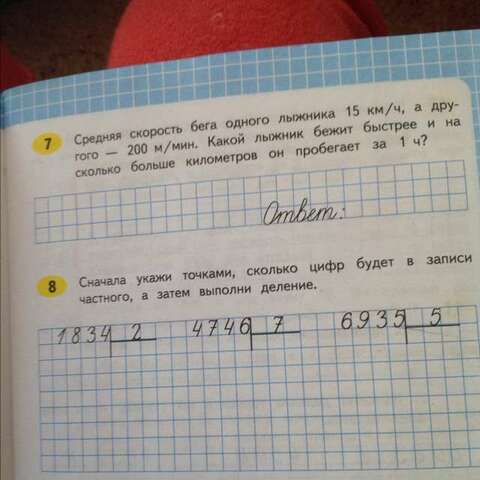 7 Средняя скорость бега одного лыжника 15 км/ч, а дру-
гого — 200 м/мин. Какой лыжник бежит быстрее и на
сколько больше километров он пробегает за 1 ч?
Ответ:
8 Сначала укажи точками, сколько цифр будет в записи
частного, а затем выполни деление.
1834 2 4746 7 6935 5